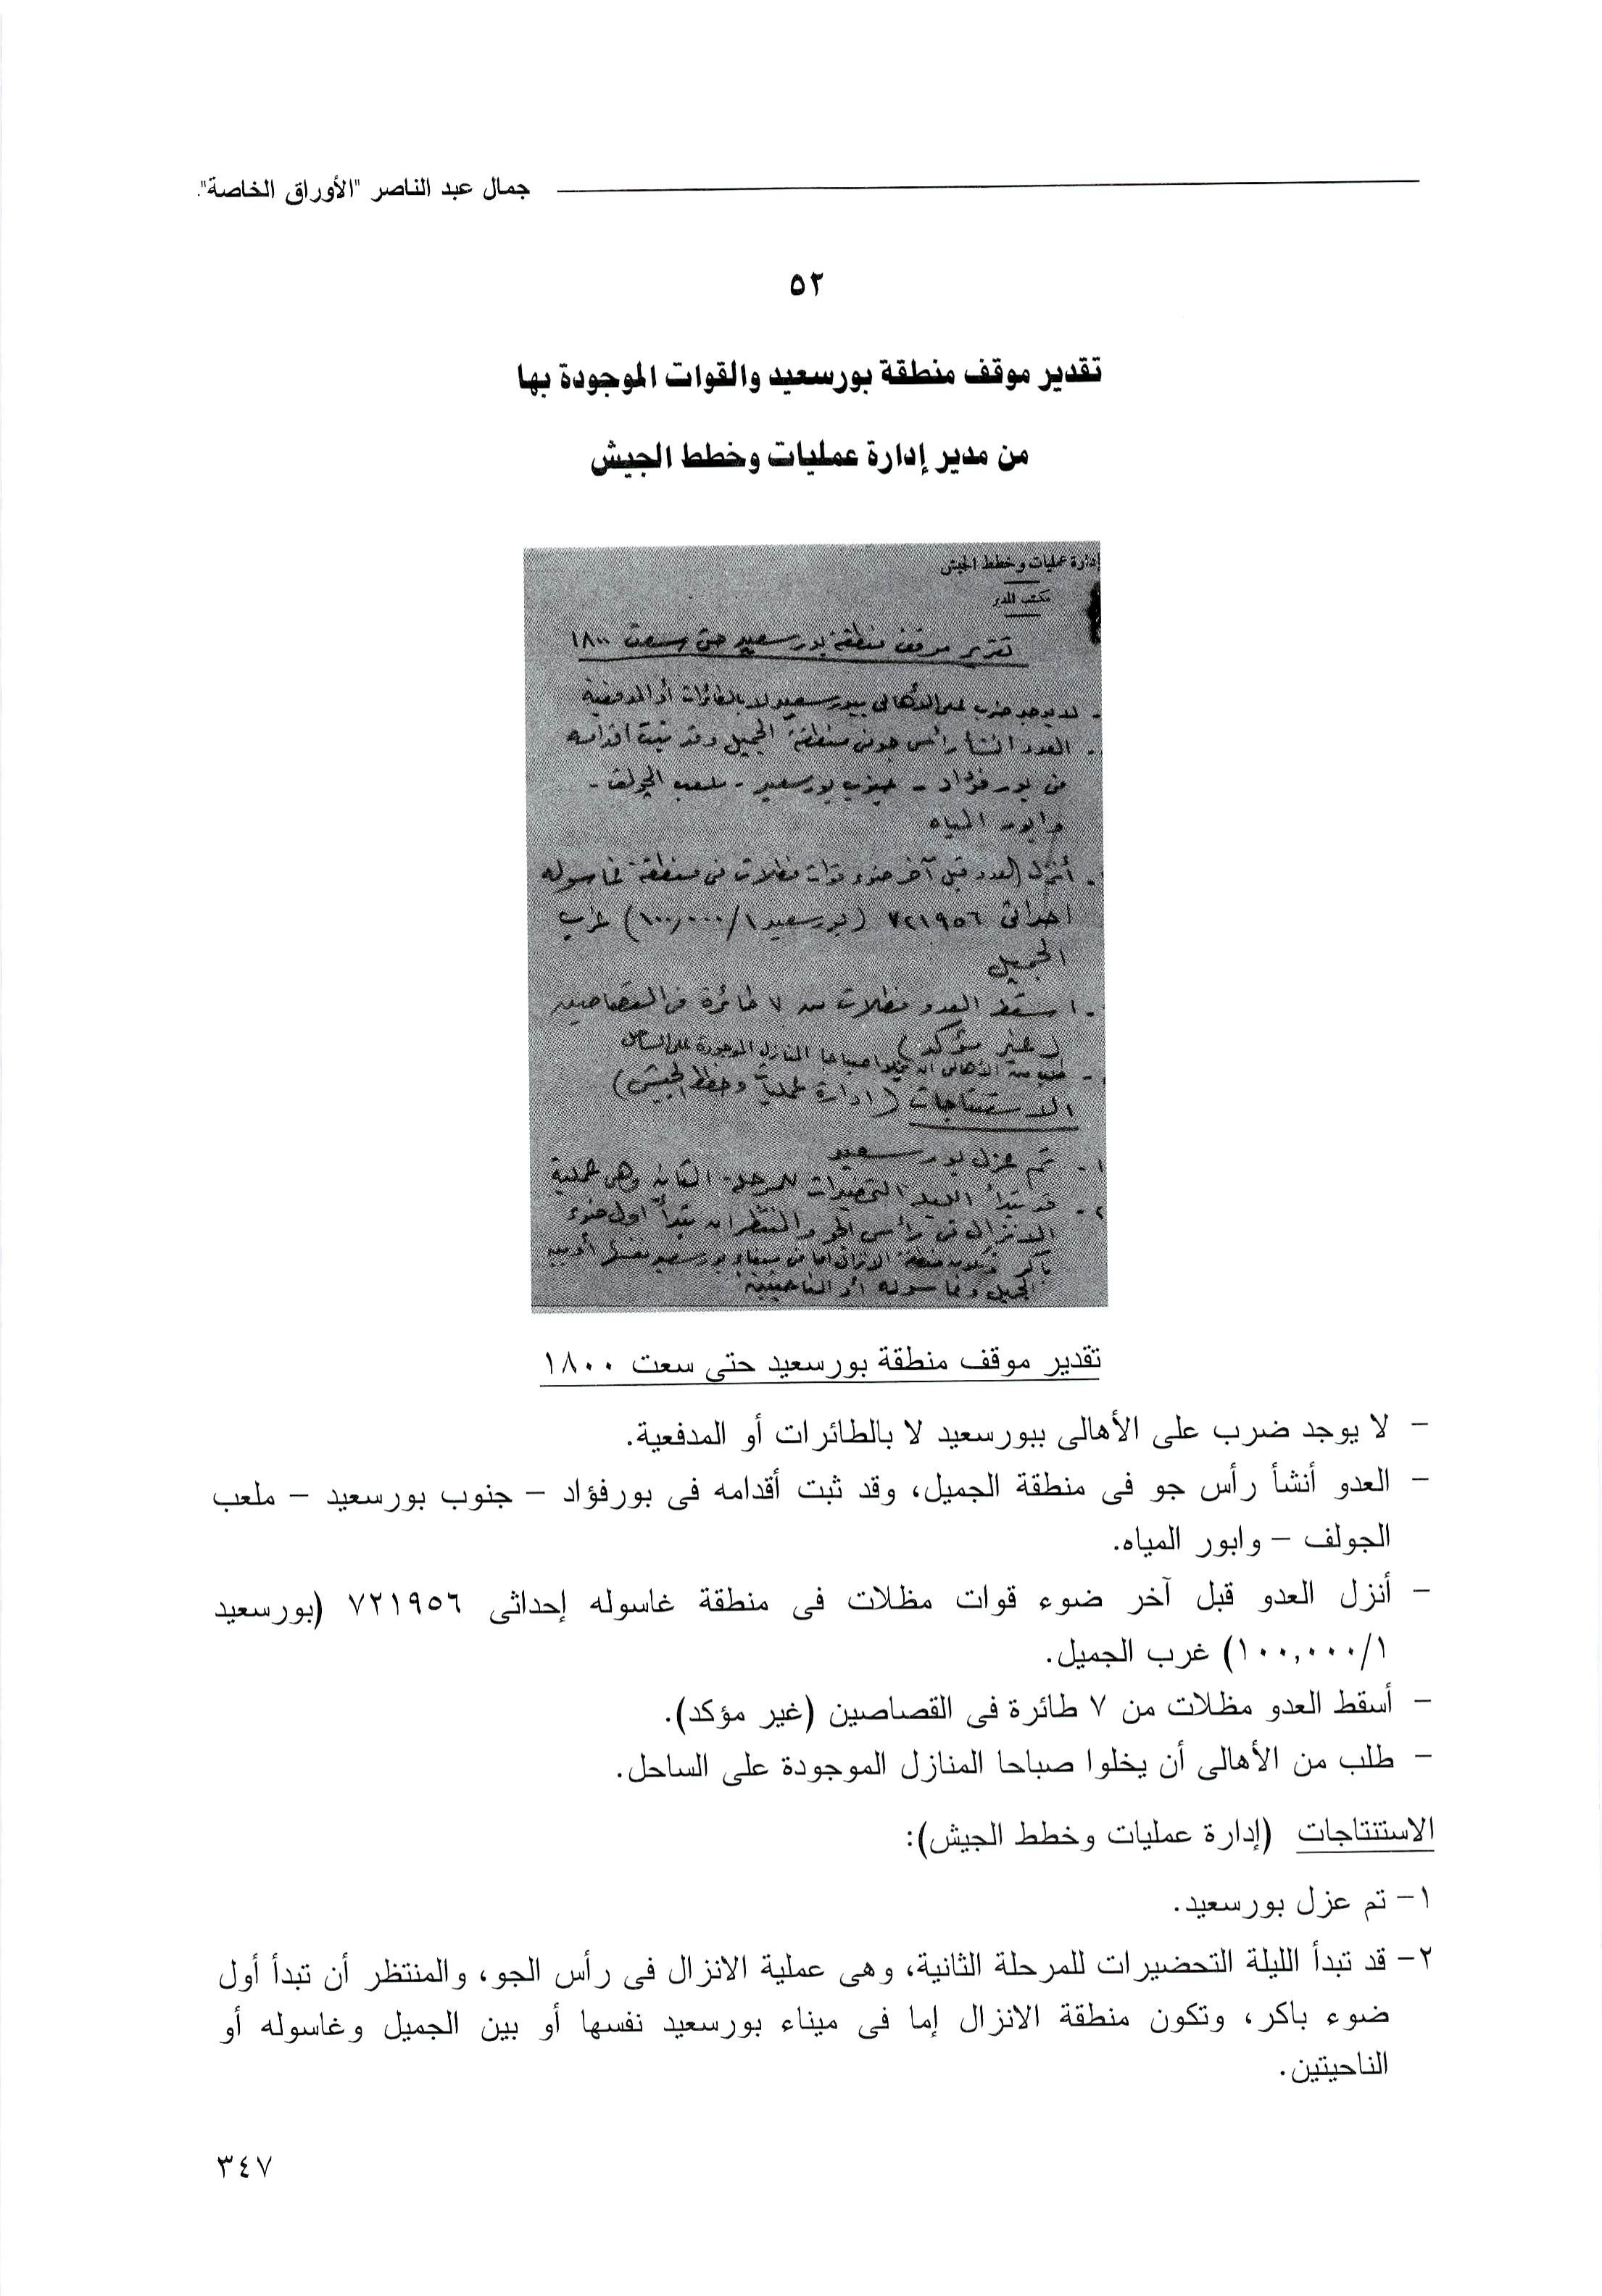 جمال عبد الناصر "الأوراق الخاصة".
٥٢
تقدير موقف منطقة بورسعيد والقوات الموجودة بها
من مدير إدارة عمليات وخطط الجيش
إدارة عمليات وخطط الجيش
مكتب المدير
تقدير موقف منطقة بورسعيد حتى سعت ١٨٠٠
- لا يوجد ضرب على الأهالى ببورسعيد لا بالطائرات أو المدفعية
- العدو انشأ رأس جو فى منطقة الجميل وقد ثبت اقدامه
فى بورفؤاد - جنوب بورسعيد - ملعب الجولف -
وابور المياه
- أنزل العدو قبل آخر ضوء قوات مظلات فى منطقة غاسوله
احداثى ٧٢١٩٥٦ (بورسعيد ١/١٠٠,٠٠٠) غرب
الجميل
- اسقط العدو مظلات من ٧ طائرة فى القصاصين
(غير مؤكد)
- طلب من الأهالى ان يخلوا صباحا المنازل الموجودة على الساحل
الاستنتاجات (ادارة عمليات وخطط الجيش)
١- تم عزل بورسعيد
٢- قد تبدأ الليلة التحضيرات للمرحلة الثانية وهى عملية
الانزال فى رأس الجو والمنتظر ان تبدأ اول ضوء
باكر وتكون منطقة الانزال اما فى ميناء بورسعيد نفسها أو بين
الجميل وغاسوله أو الناحيتين
تقدير موقف منطقة بورسعيد حتى سعت ١٨٠٠
- لا يوجد ضرب على الأهالى ببورسعيد لا بالطائرات أو المدفعية.
- العدو أنشأ رأس جو فى منطقة الجميل، وقد ثبت أقدامه فى بورفؤاد – جنوب بورسعيد – ملعب
الجولف – وابور المياه.
- أنزل العدو قبل آخر ضوء قوات مظلات فى منطقة غاسوله إحداثى ٧٢١٩٥٦ (بورسعيد
١/١٠٠,٠٠٠) غرب الجميل.
- أسقط العدو مظلات من ٧ طائرة فى القصاصين (غير مؤكد).
- طلب من الأهالى أن يخلوا صباحا المنازل الموجودة على الساحل.
الاستنتاجات (إدارة عمليات وخطط الجيش):
١- تم عزل بورسعيد.
٢- قد تبدأ الليلة التحضيرات للمرحلة الثانية، وهى عملية الانزال فى رأس الجو، والمنتظر أن تبدأ أول
ضوء باكر، وتكون منطقة الانزال إما فى ميناء بورسعيد نفسها أو بين الجميل وغاسوله أو
الناحيتين.
٣٤٧